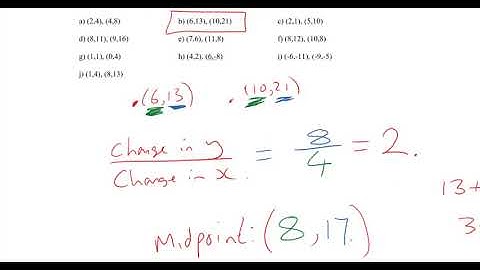 a) (2,4), (4,8) b) (6,13), (10,21) c) (2,1), (5,10)
d) (8,11), (9,16) e) (7,6), (11,8) f) (8,12), (10,8)
g) (1,1), (0,4) h) (4,2), (6,-8) i) (-6,-11), (-9,-5)
j) (1,4), (8,13)
(6,13) (10,21)
Change in y = 8 = 2.
Change in x. 4
13+
3
Midpoint: (8,17.)